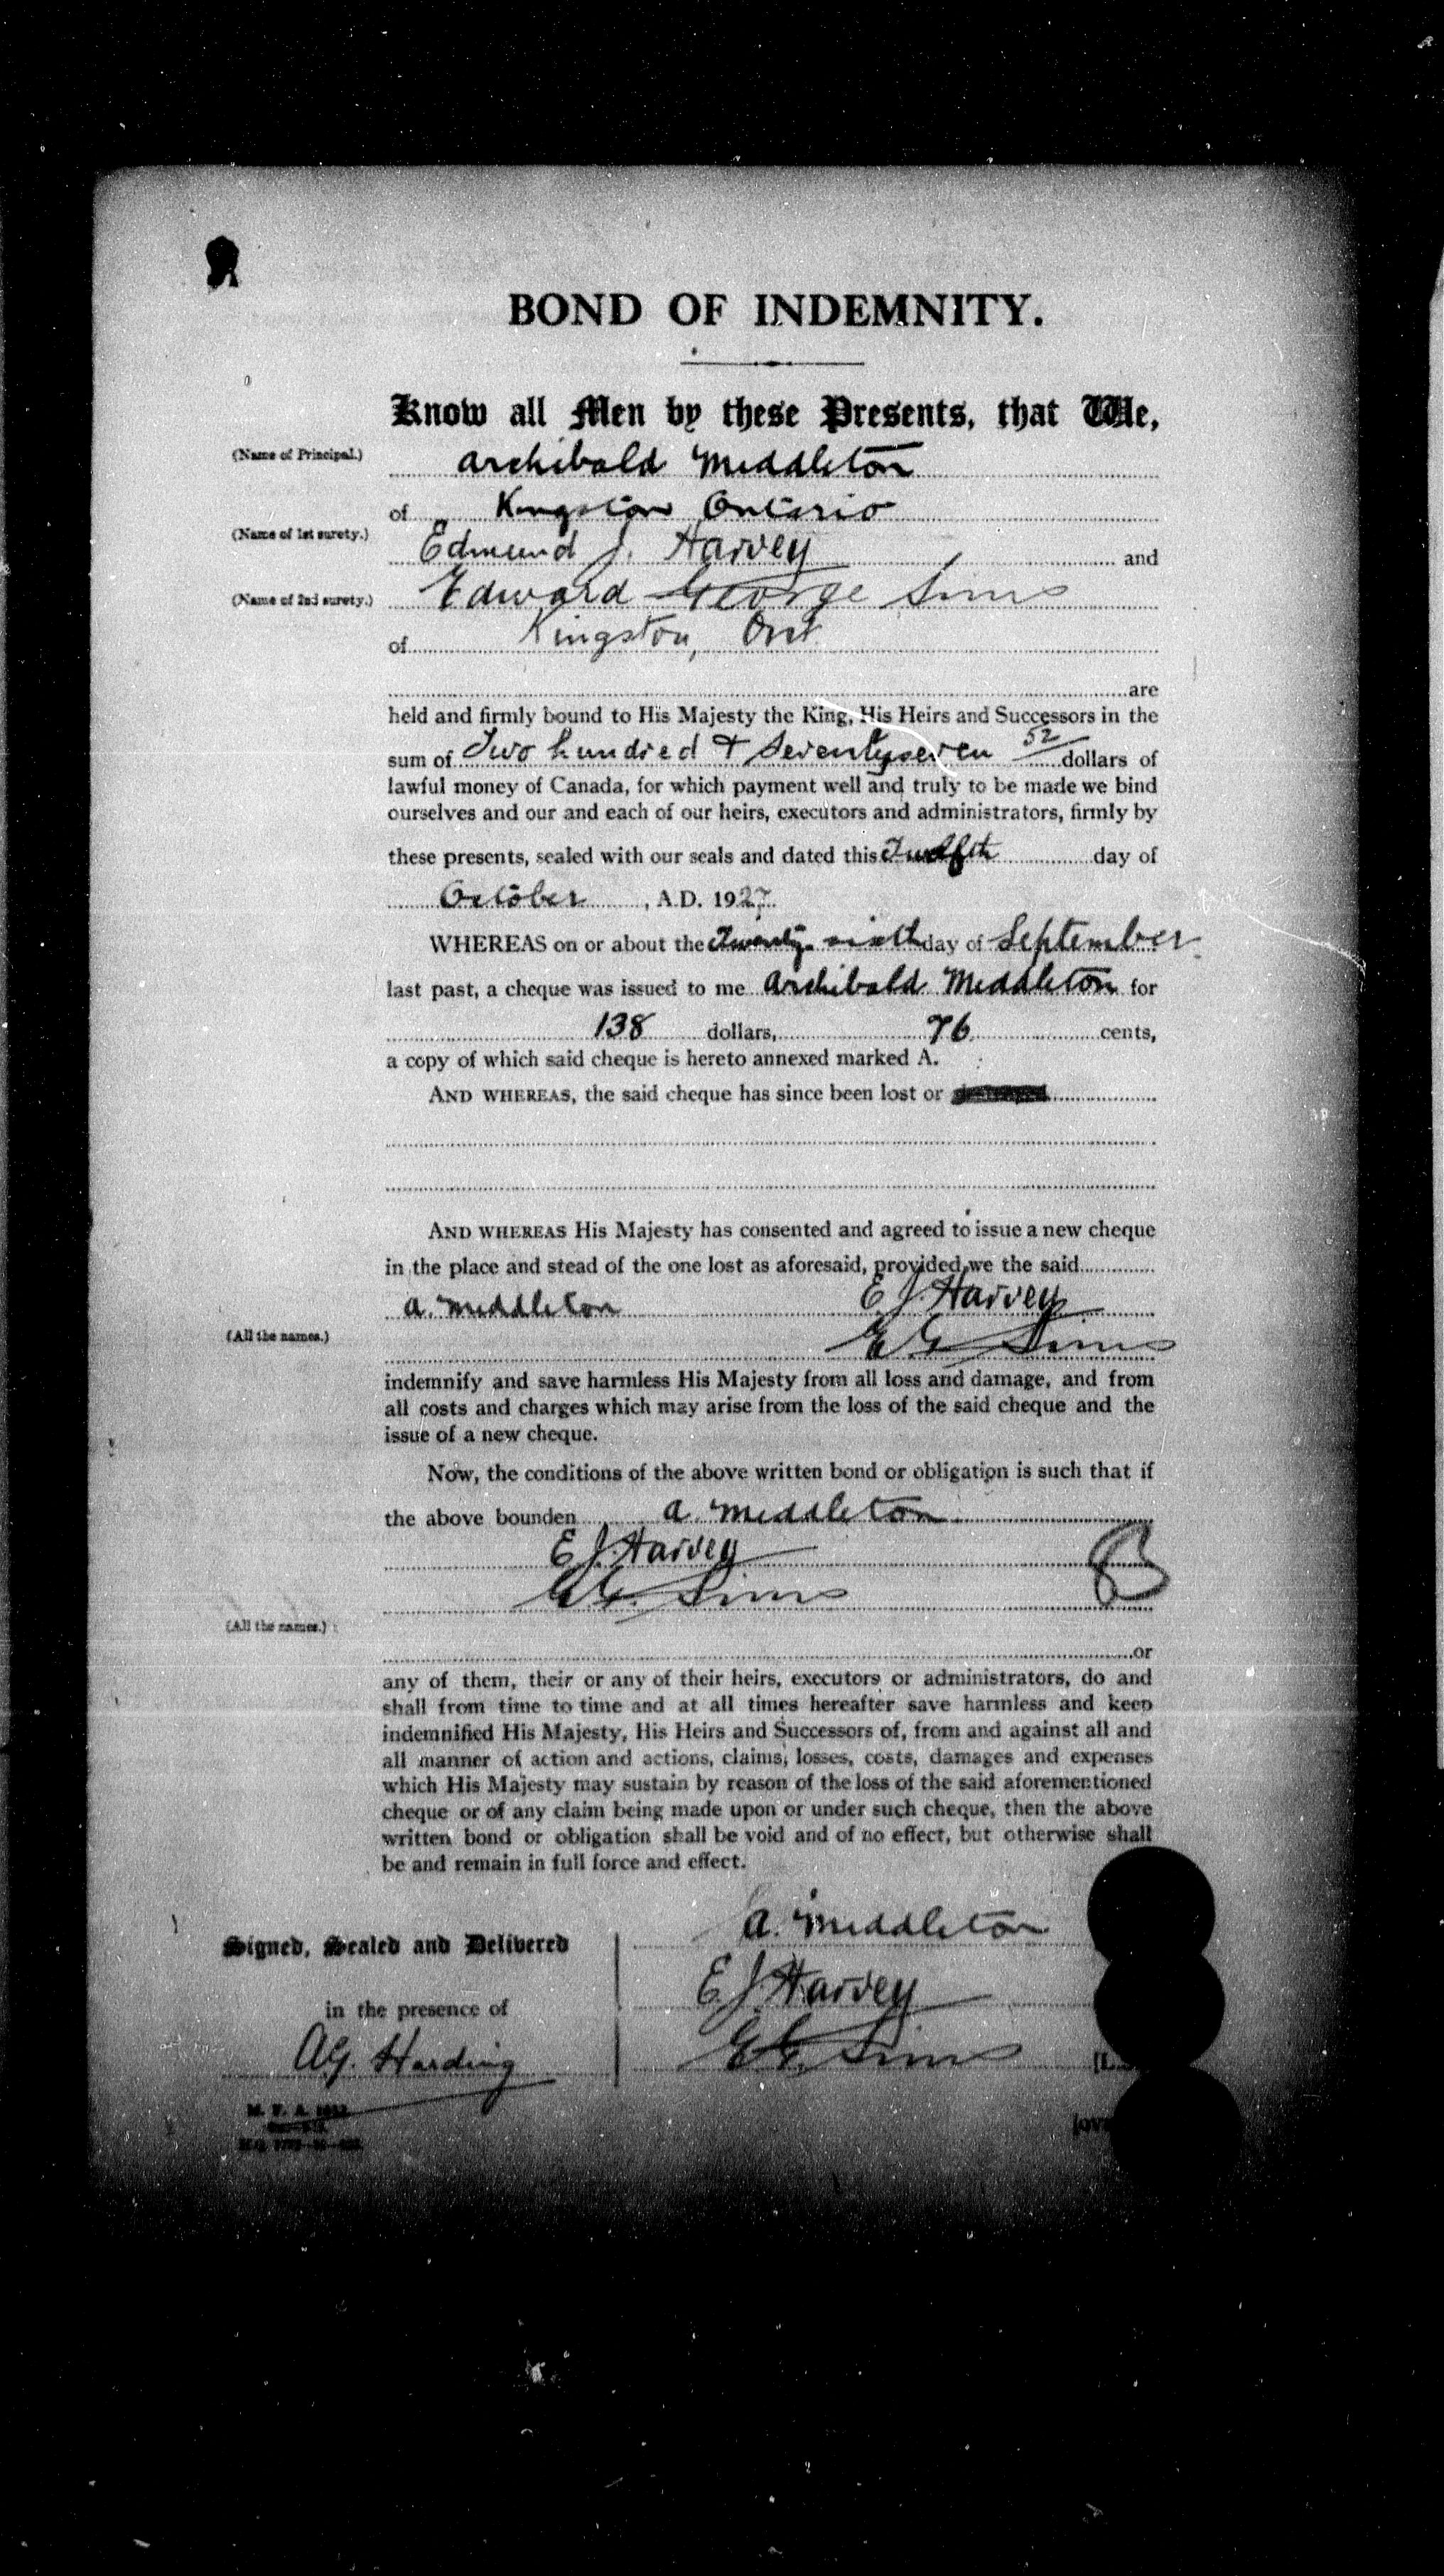 BOND OF INDEMNITY.
Know all Men by these Presents, that We,
(Name of Principal.) Archibald Middleton
of Kingston Ontario
(Name of 1st surety.) Edmund J. Harvey and
(Name of 2nd surety.) Edward George Sims
of Kingston, Ont
are
held and firmly bound to His Majesty the King, His Heirs and Successors in the
sum of Two hundred & Seventyseven 52 dollars of
lawful money of Canada, for which payment well and truly to be made we bind
ourselves and our and each of our heirs, executors and administrators, firmly by
these presents, sealed with our seals and dated this Twelfth day of
October, A.D. 1927
WHEREAS on or about the Twenty sixth day of September
last past, a cheque was issued to me Archibald Middleton for
138 dollars, 76 cents,
a copy of which said cheque is hereto annexed marked A.
AND WHEREAS, the said cheque has since been lost or
AND WHEREAS His Majesty has consented and agreed to issue a new cheque
in the place and stead of the one lost as aforesaid, provided we the said
a. Middleton E. J. Harvey
(All the names.) E G Sims
indemnify and save harmless His Majesty from all loss and damage, and from
all costs and charges which may arise from the loss of the said cheque and the
issue of a new cheque.
Now, the conditions of the above written bond or obligation is such that if
the above bounden a. Middleton
E. J. Harvey
E G. Sims
(All the names.)
or
any of them, their or any of their heirs, executors or administrators, do and
shall from time to time and at all times hereafter save harmless and keep
indemnified His Majesty, His Heirs and Successors of, from and against all and
all manner of action and actions, claims, losses, costs, damages and expenses
which His Majesty may sustain by reason of the loss of the said aforementioned
cheque or of any claim being made upon or under such cheque, then the above
written bond or obligation shall be void and of no effect, but otherwise shall
be and remain in full force and effect.
a. Middleton
Signed, Sealed and Delivered
E. J. Harvey
in the presence of
E G. Sims
A.G. Harding